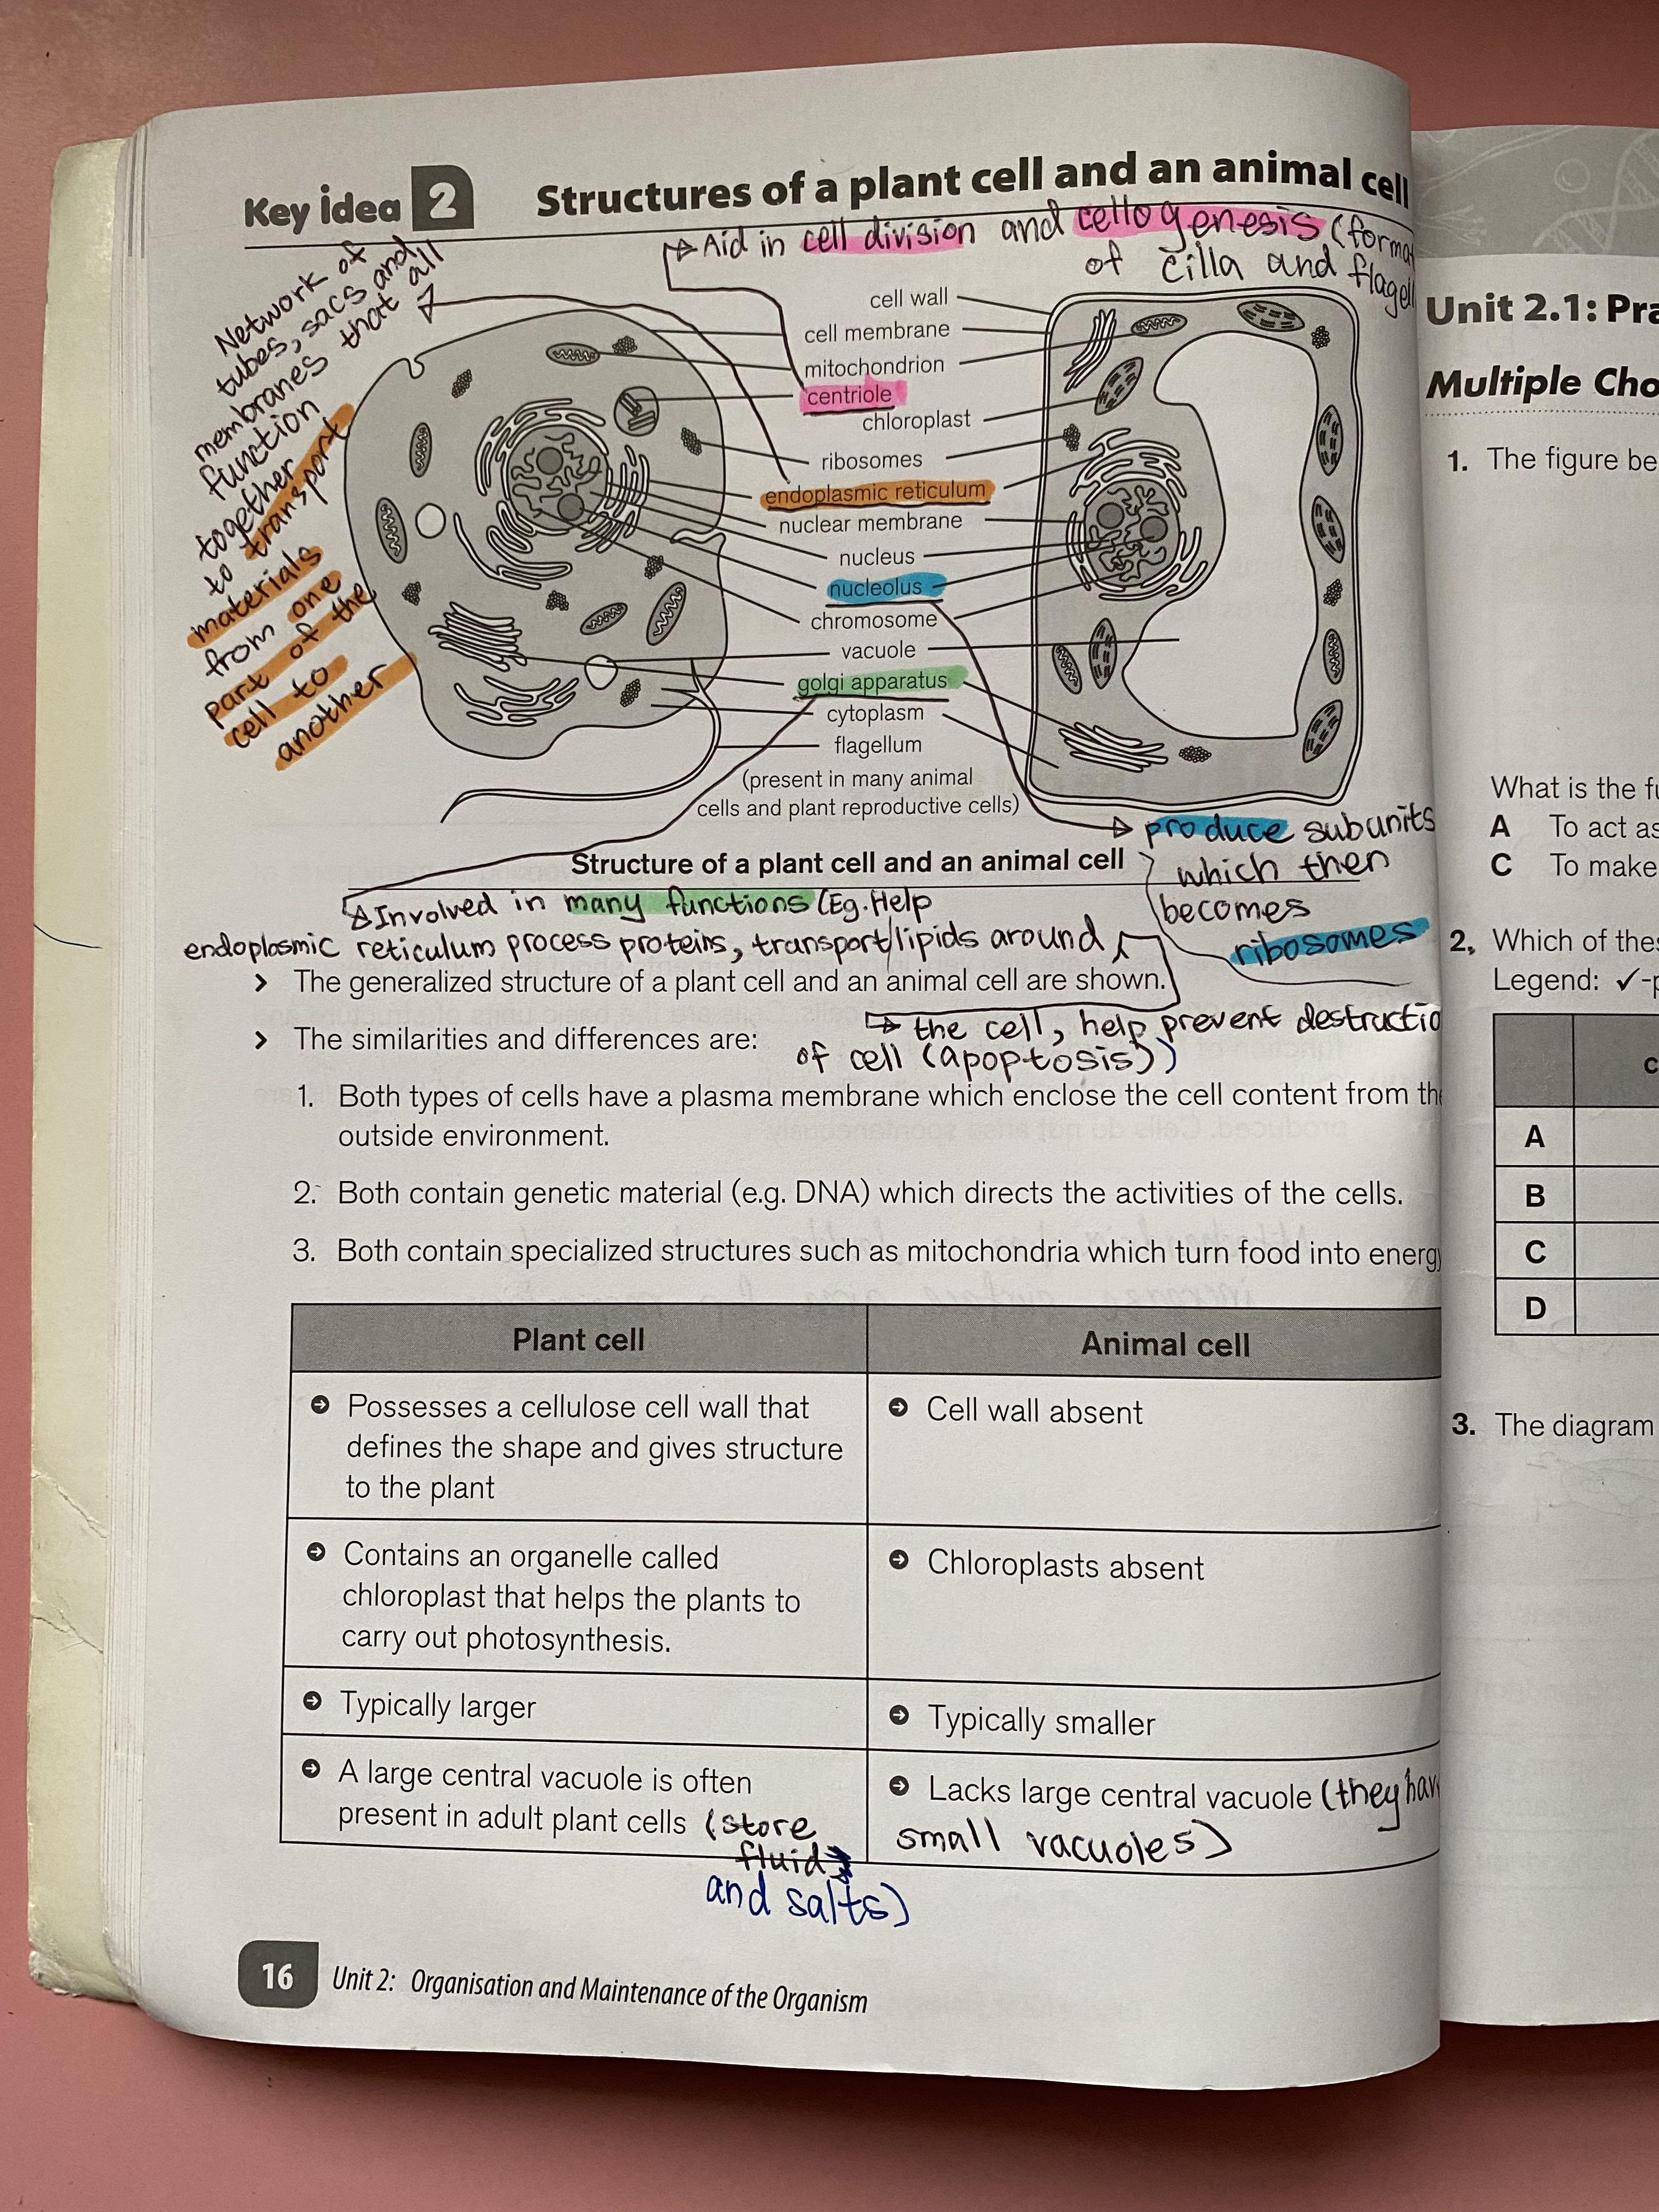 Key idea 2 Structures of a plant cell and an animal cell
Aid in cell division and cellogenesis (format
of cilla and flagell
Network of
tubes, sacs and
membranes that all
function
together
to transport
materials
from one
part of the
cell to
another
cell wall
cell membrane
mitochondrion
centriole
chloroplast
ribosomes
endoplasmic reticulum
nuclear membrane
nucleus
nucleolus
chromosome
vacuole
golgi apparatus
cytoplasm
flagellum
(present in many animal
cells and plant reproductive cells)
produce subunits
which then
becomes
ribosomes
Structure of a plant cell and an animal cell
Involved in many functions (Eg. Help
endoplasmic reticulum process proteins, transport/lipids around
> The generalized structure of a plant cell and an animal cell are shown.
the cell, help prevent destructio
of cell (apoptosis))
> The similarities and differences are:
1. Both types of cells have a plasma membrane which enclose the cell content from the
outside environment.
2. Both contain genetic material (e.g. DNA) which directs the activities of the cells.
3. Both contain specialized structures such as mitochondria which turn food into energy
Plant cell
Animal cell
Possesses a cellulose cell wall that
defines the shape and gives structure
to the plant
Cell wall absent
Contains an organelle called
chloroplast that helps the plants to
carry out photosynthesis.
Chloroplasts absent
Typically larger
Typically smaller
A large central vacuole is often
present in adult plant cells (store
fluid
and salts)
Lacks large central vacuole (they hav
small vacuoles)
16 Unit 2: Organisation and Maintenance of the Organism
Unit 2.1: Pra
Multiple Cho
1. The figure be
What is the fu
A To act as
C To make
2. Which of thes
Legend: ✓-p
c
A
B
C
D
3. The diagram